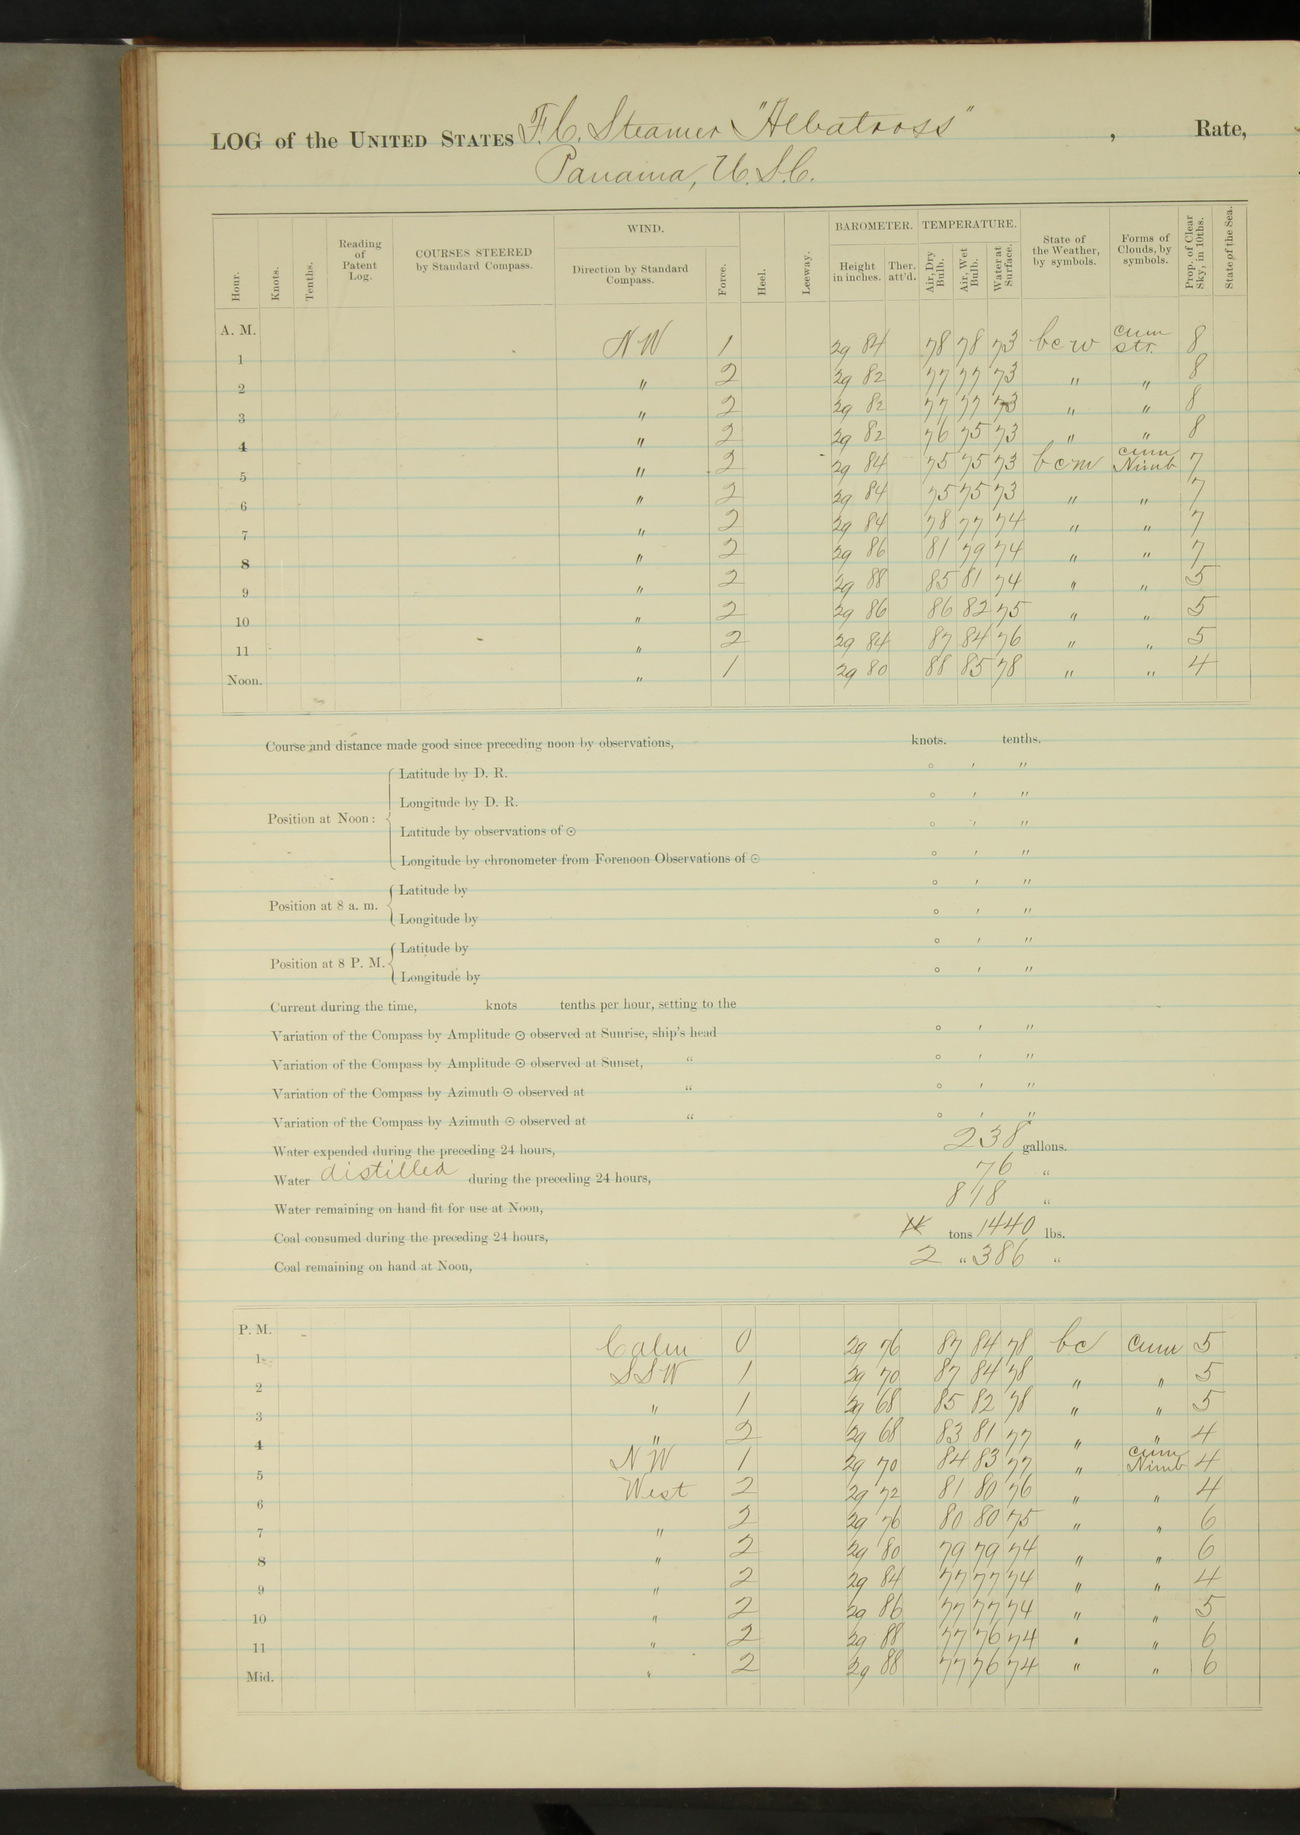 LOG of the UNITED STATES F.C. Steamer "Albatross", Rate,
Panama, U.S.C.
Hour. Knots. Tenths. Reading of Patent Log. COURSES STEERED by Standard Compass. WIND. Direction by Standard Compass. Force. Heel. Leeway. BAROMETER. Height in inches. Ther. att'd. TEMPERATURE. Air, Dry Bulb. Air, Wet Bulb. Water at Surface. State of the Weather, by symbols. Forms of Clouds, by symbols. Prop. of Clear Sky, in 10ths. State of the Sea.
A. M.
1 NW 1 29 84 78 78 73 bcw cum str. 8
2 " 2 29 82 77 77 73 " " 8
3 " 2 29 82 77 77 73 " " 8
4 " 2 29 82 76 75 73 " " 8
5 " 2 29 84 75 75 73 bcm cum Nimb 7
6 " 2 29 84 75 75 73 " " 7
7 " 2 29 84 78 77 74 " " 7
8 " 2 29 86 81 79 74 " " 7
9 " 2 29 88 85 81 74 " " 5
10 " 2 29 86 86 82 75 " " 5
11 " 2 29 84 87 84 76 " " 5
Noon. " 1 29 80 88 85 78 " " 4
Course and distance made good since preceding noon by observations, knots. tenths.
Latitude by D. R. ° ′ ″
Longitude by D. R. ° ′ ″
Position at Noon:
Latitude by observations of ☉ ° ′ ″
Longitude by chronometer from Forenoon Observations of ☉ ° ′ ″
Latitude by ° ′ ″
Position at 8 a. m.
Longitude by ° ′ ″
Latitude by ° ′ ″
Position at 8 P. M.
Longitude by ° ′ ″
Current during the time, knots tenths per hour, setting to the
Variation of the Compass by Amplitude ☉ observed at Sunrise, ship's head ° ′ ″
Variation of the Compass by Amplitude ☉ observed at Sunset, " ° ′ ″
Variation of the Compass by Azimuth ☉ observed at " ° ′ ″
Variation of the Compass by Azimuth ☉ observed at " ° ′ ″
Water expended during the preceding 24 hours, 238 gallons.
Water distilled during the preceding 24 hours, 76 "
Water remaining on hand fit for use at Noon, 818 "
Coal consumed during the preceding 24 hours, tons 1440 lbs.
Coal remaining on hand at Noon, 2 " 386 "
P. M.
1 Calm 0 29 76 87 84 78 bc cum 5
2 SSW 1 29 70 87 84 78 " " 5
3 " 1 29 68 85 82 78 " " 5
4 " 2 29 68 83 81 77 " " 4
5 NW 1 29 70 84 83 77 " cum Nimb 4
6 West 2 29 72 81 80 76 " " 4
7 " 2 29 76 80 80 75 " " 6
8 " 2 29 80 79 79 74 " " 6
9 " 2 29 84 77 77 74 " " 4
10 " 2 29 86 77 77 74 " " 5
11 " 2 29 88 77 76 74 " " 6
Mid. " 2 29 88 77 76 74 " " 6